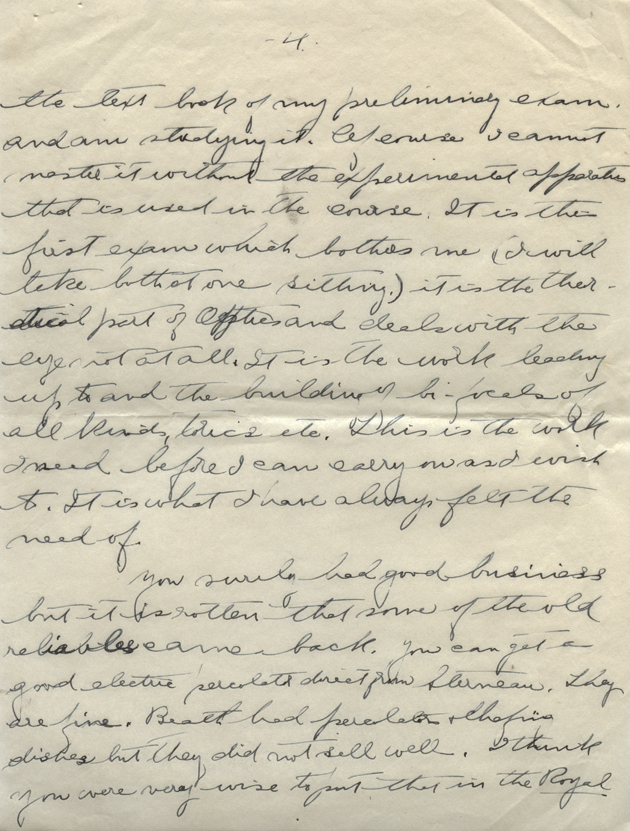 - 4.
the text book of my preliminary exam.
and am studying it. Of course I cannot
master it without the experimental apparatus
that is used in the course. It is the
first exam which bothers me (I will
take both at one sitting.) it is the ther-
etical part of Optics and deals with the
eye not at all. It is the work leading
up to and the building of bi-focals of
all kinds, torics etc. This is the work
I need before I can carry on as I wish
to. It is what I have always felt the
need of.
You surely had good business
but it is rotten that some of the old
reliables came back. You can get a
good electric percolator direct from Sternau. They
are fine. Beath had percolators & Chafing
dishes but they did not sell well. I think
you were very wise to put that in the Royal